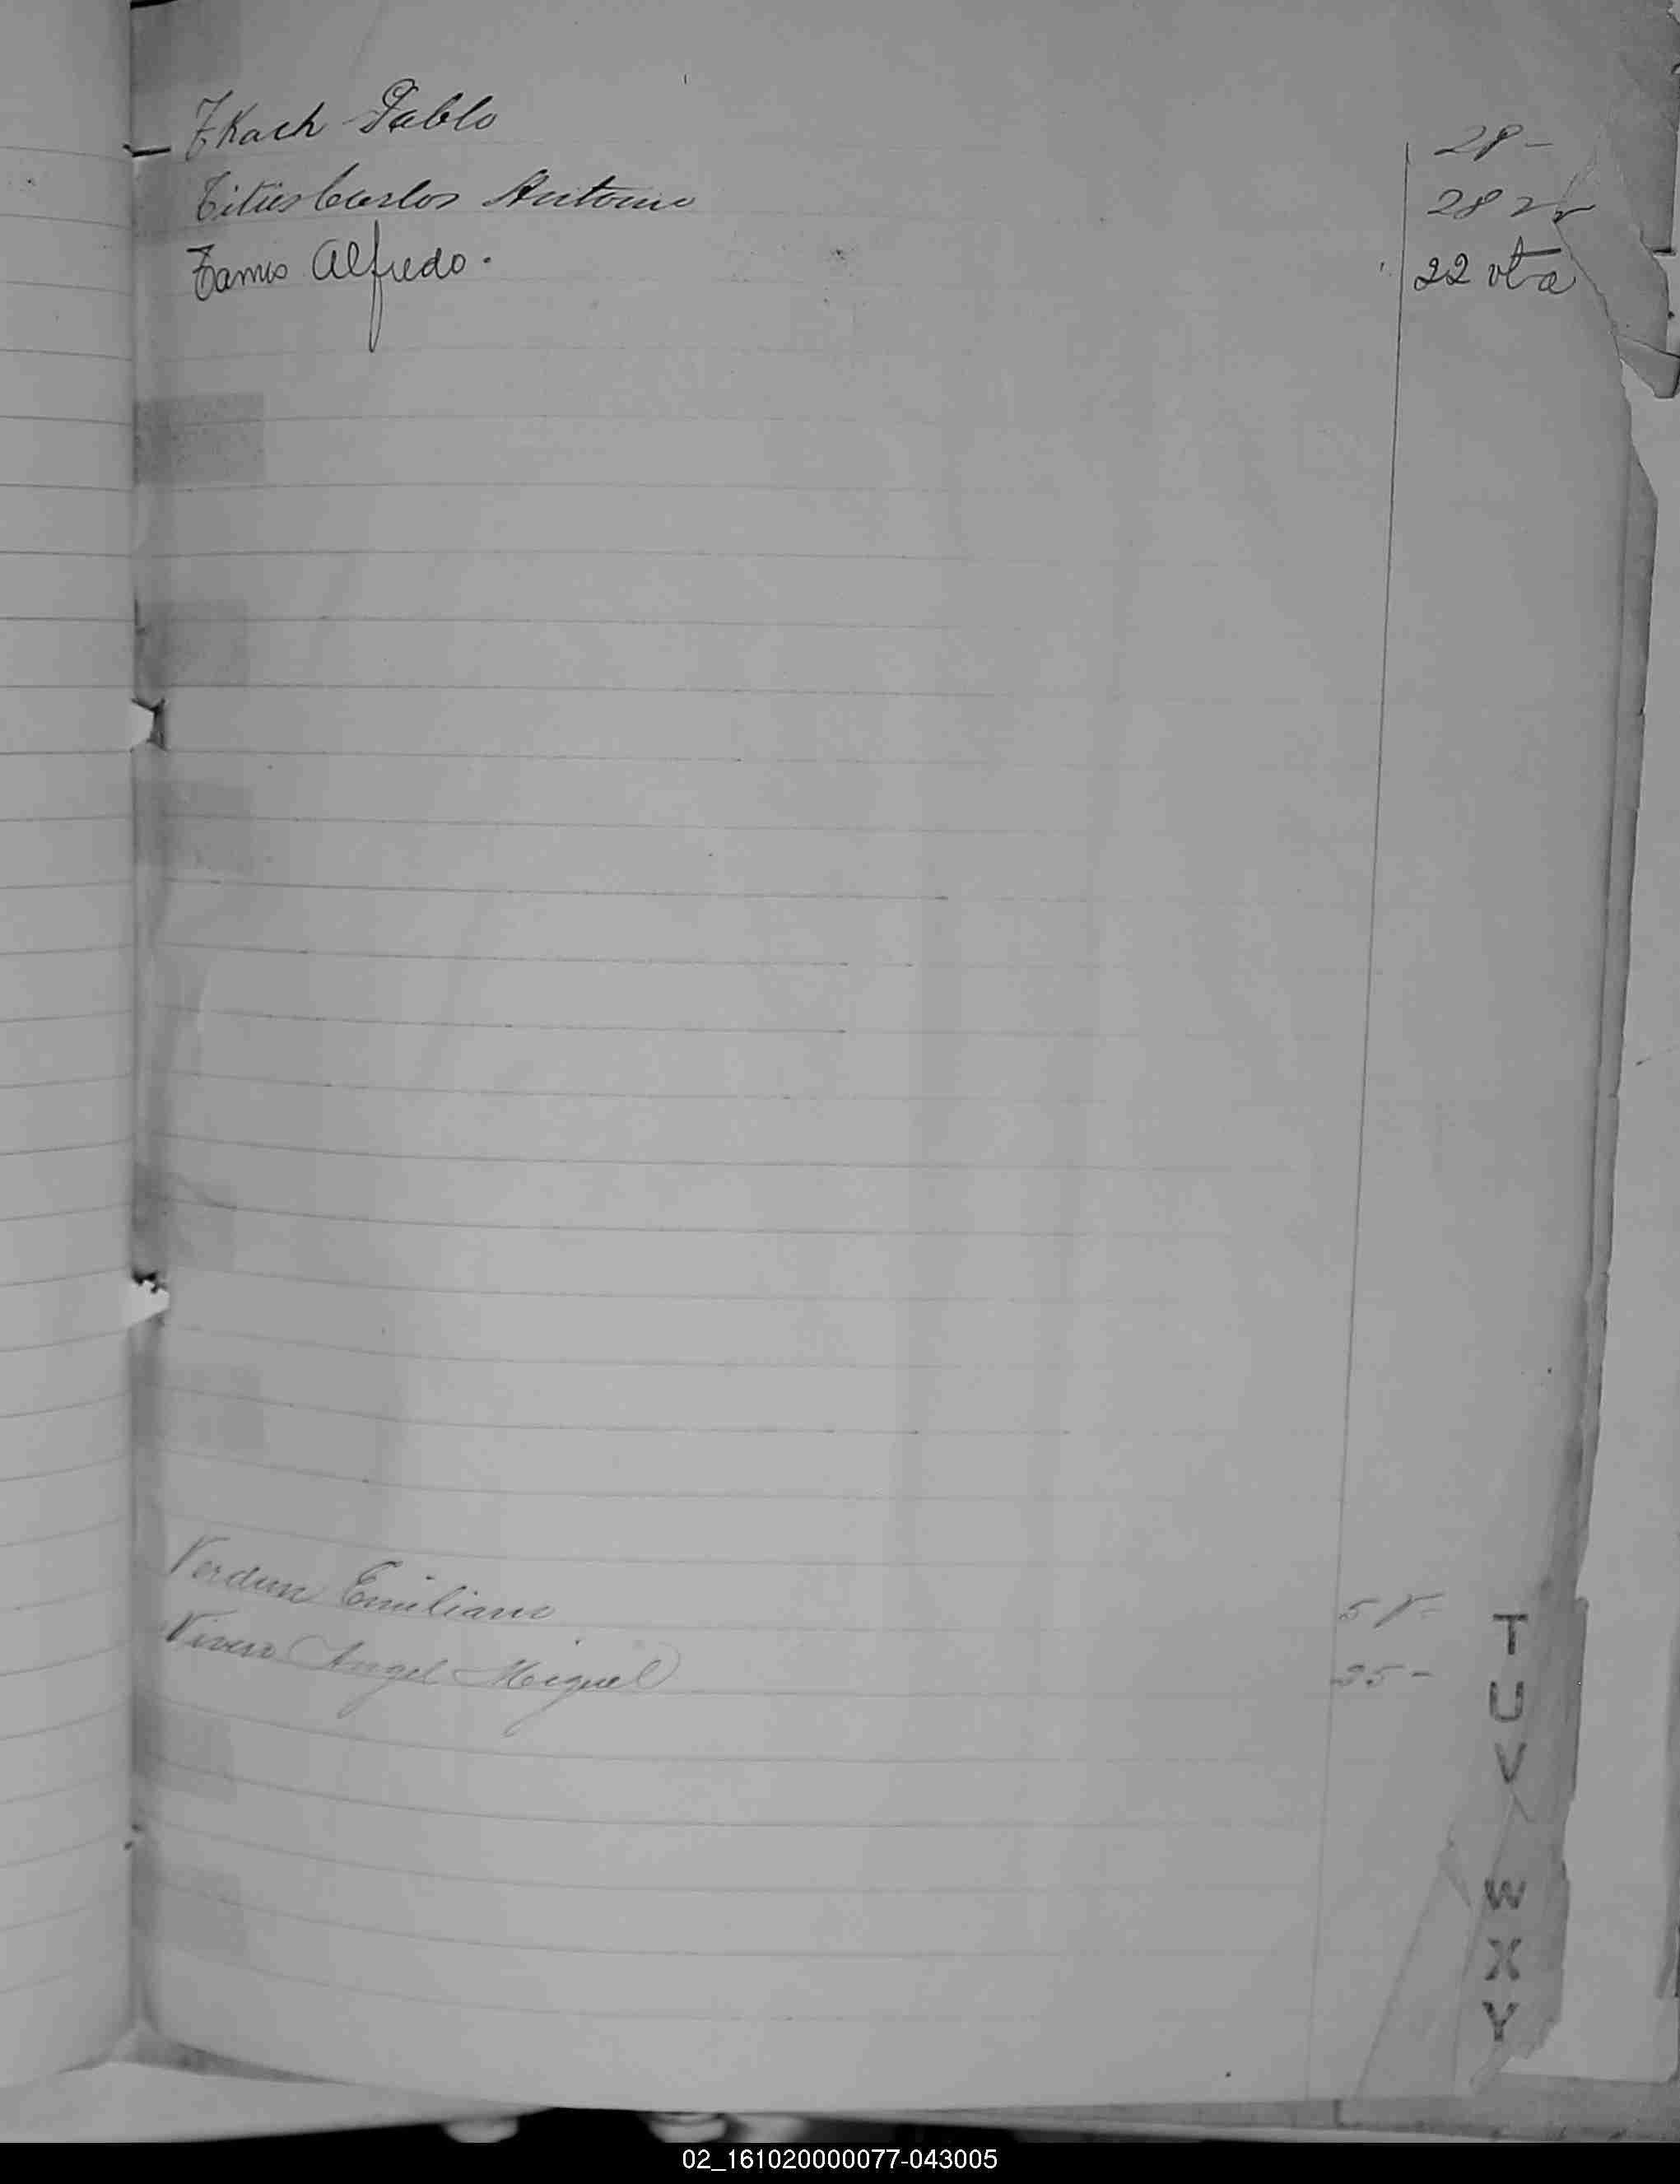 Tkach Pablo 28-
Carlos Antonio 28 v
Alfredo. 22 vta
Verdun Emiliano 5 v-
Angel Miguel 25-
T
U
V
W
X
Y
02_161020000077-043005